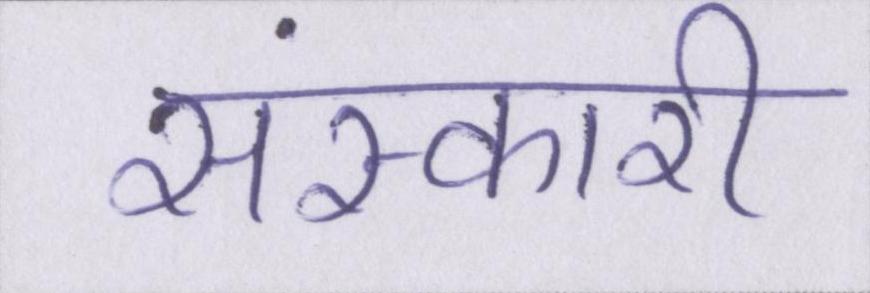 संस्कारी